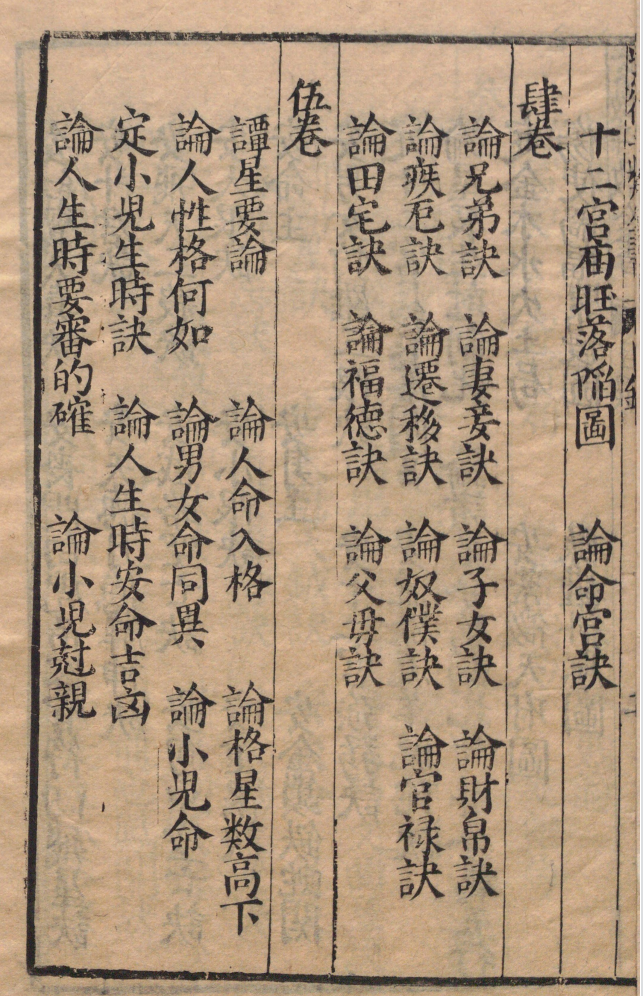 十二宮庙旺落陷圖　論命宮訣
肆卷
論兄弟訣　論妻妾訣　論子女訣　論財帛訣
論疾厄訣　論遷移訣　論奴僕訣　論官禄訣
論田宅訣　論福德訣　論父母訣
伍卷
譚星要論　論人命入格　論格星数高下
論人性格何如　論男女命同異　論小児命
定小児生時訣　論人生時安命吉凶
論人生時要審的確　論小児尅親